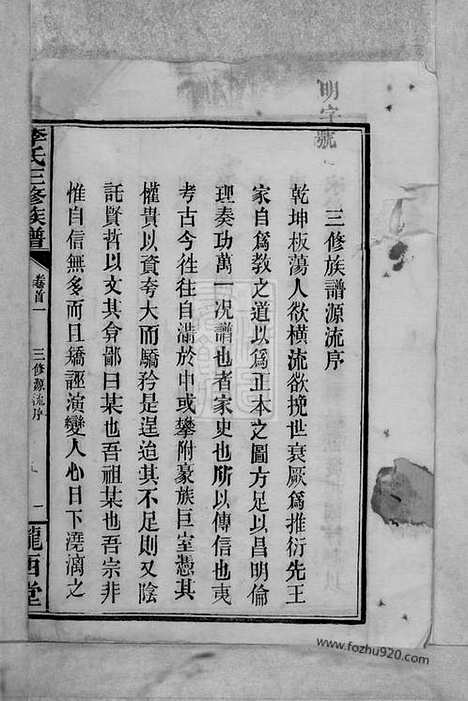 明字號
三修族譜源流序
乾坤板蕩人欲橫流欲挽世衰厥爲推衍先王
家自爲教之道以爲正本之圖方足以昌明倫
理奏功萬一况譜也者家史也所以傳信也夷
考古今徃徃自滿於中或攀附豪族巨室憑其
權貴以資夸大而驕矜是逞迨其不足則又陰
託賢哲以文其弇鄙曰某也吾祖某也吾宗非
惟自信無多而且矯誣演變人心日下澆漓之
李氏三修族譜
卷首一
三修源流序
一
隴西堂
www.fozhu920.com